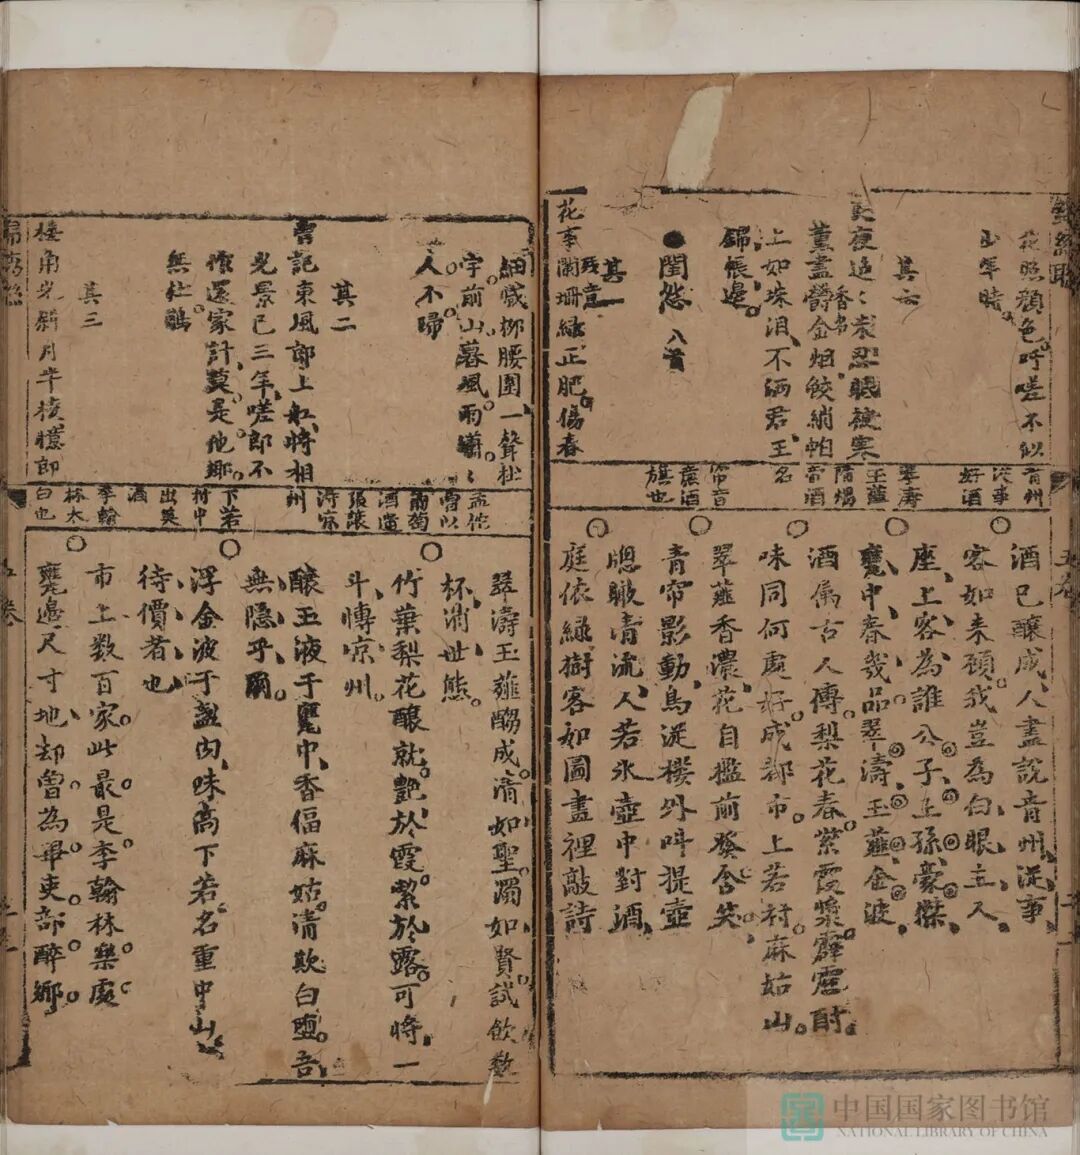 花照顏色吁嗟不似
年時
其六
更夜迢迢未忍眠被寒
薰盡爵金烟鮫綃帕
上如珠淚不洒君王
錦帳邊
閨怨 八首
其一
花事闌珊綠正肥傷春
青州
從事
好酒
翠濤
玉薤
隋煬
帝酒
名
帘音
廉酒
旗也
酒已釀成人盡說青州從事
客如未頎我豈為白眼主人
座上客為誰公子王孫豪傑
甕中春幾品翠濤玉薤金波
酒為古人傳梨花春紫霞漿霹靂酎
味同何處好成都市上若村麻姑山
翠薤香濃花自檻前發含笑
青帘影動鳥從樓外叫提壺
聰瞰清流人若氷壺中對酒
庭依綠樹客如圖畫裡敲詩
細減柳腰圍一聲杜
宇前山暮風雨瀟瀟
人不歸
其二
曾記東風郎上船將相
光景已三年嗟郎不
作還家計莫是他鄉
無杜鵑
其三
樓角光斜月半稜檐郎
孟佗
曾以
葡萄
酒遺
張讓
得涼
州
下若
村中
出美
酒
李翰
林太
白也
翠濤玉薤醑成清如聖濁如賢試飲數
杯消世態
竹葉梨花釀就艷於霞潔於露可將一
斗博凉州
釀玉液于甕中香偪麻姑清欺白墮吾
無隱乎爾
浮金波于盞內味高下若名重中山
待價者也
市上數百家此最是李翰林樂處
甕邊尺寸地却曾為畢吏部醉鄉
中国国家图书馆
NATIONAL LIBRARY OF CHINA